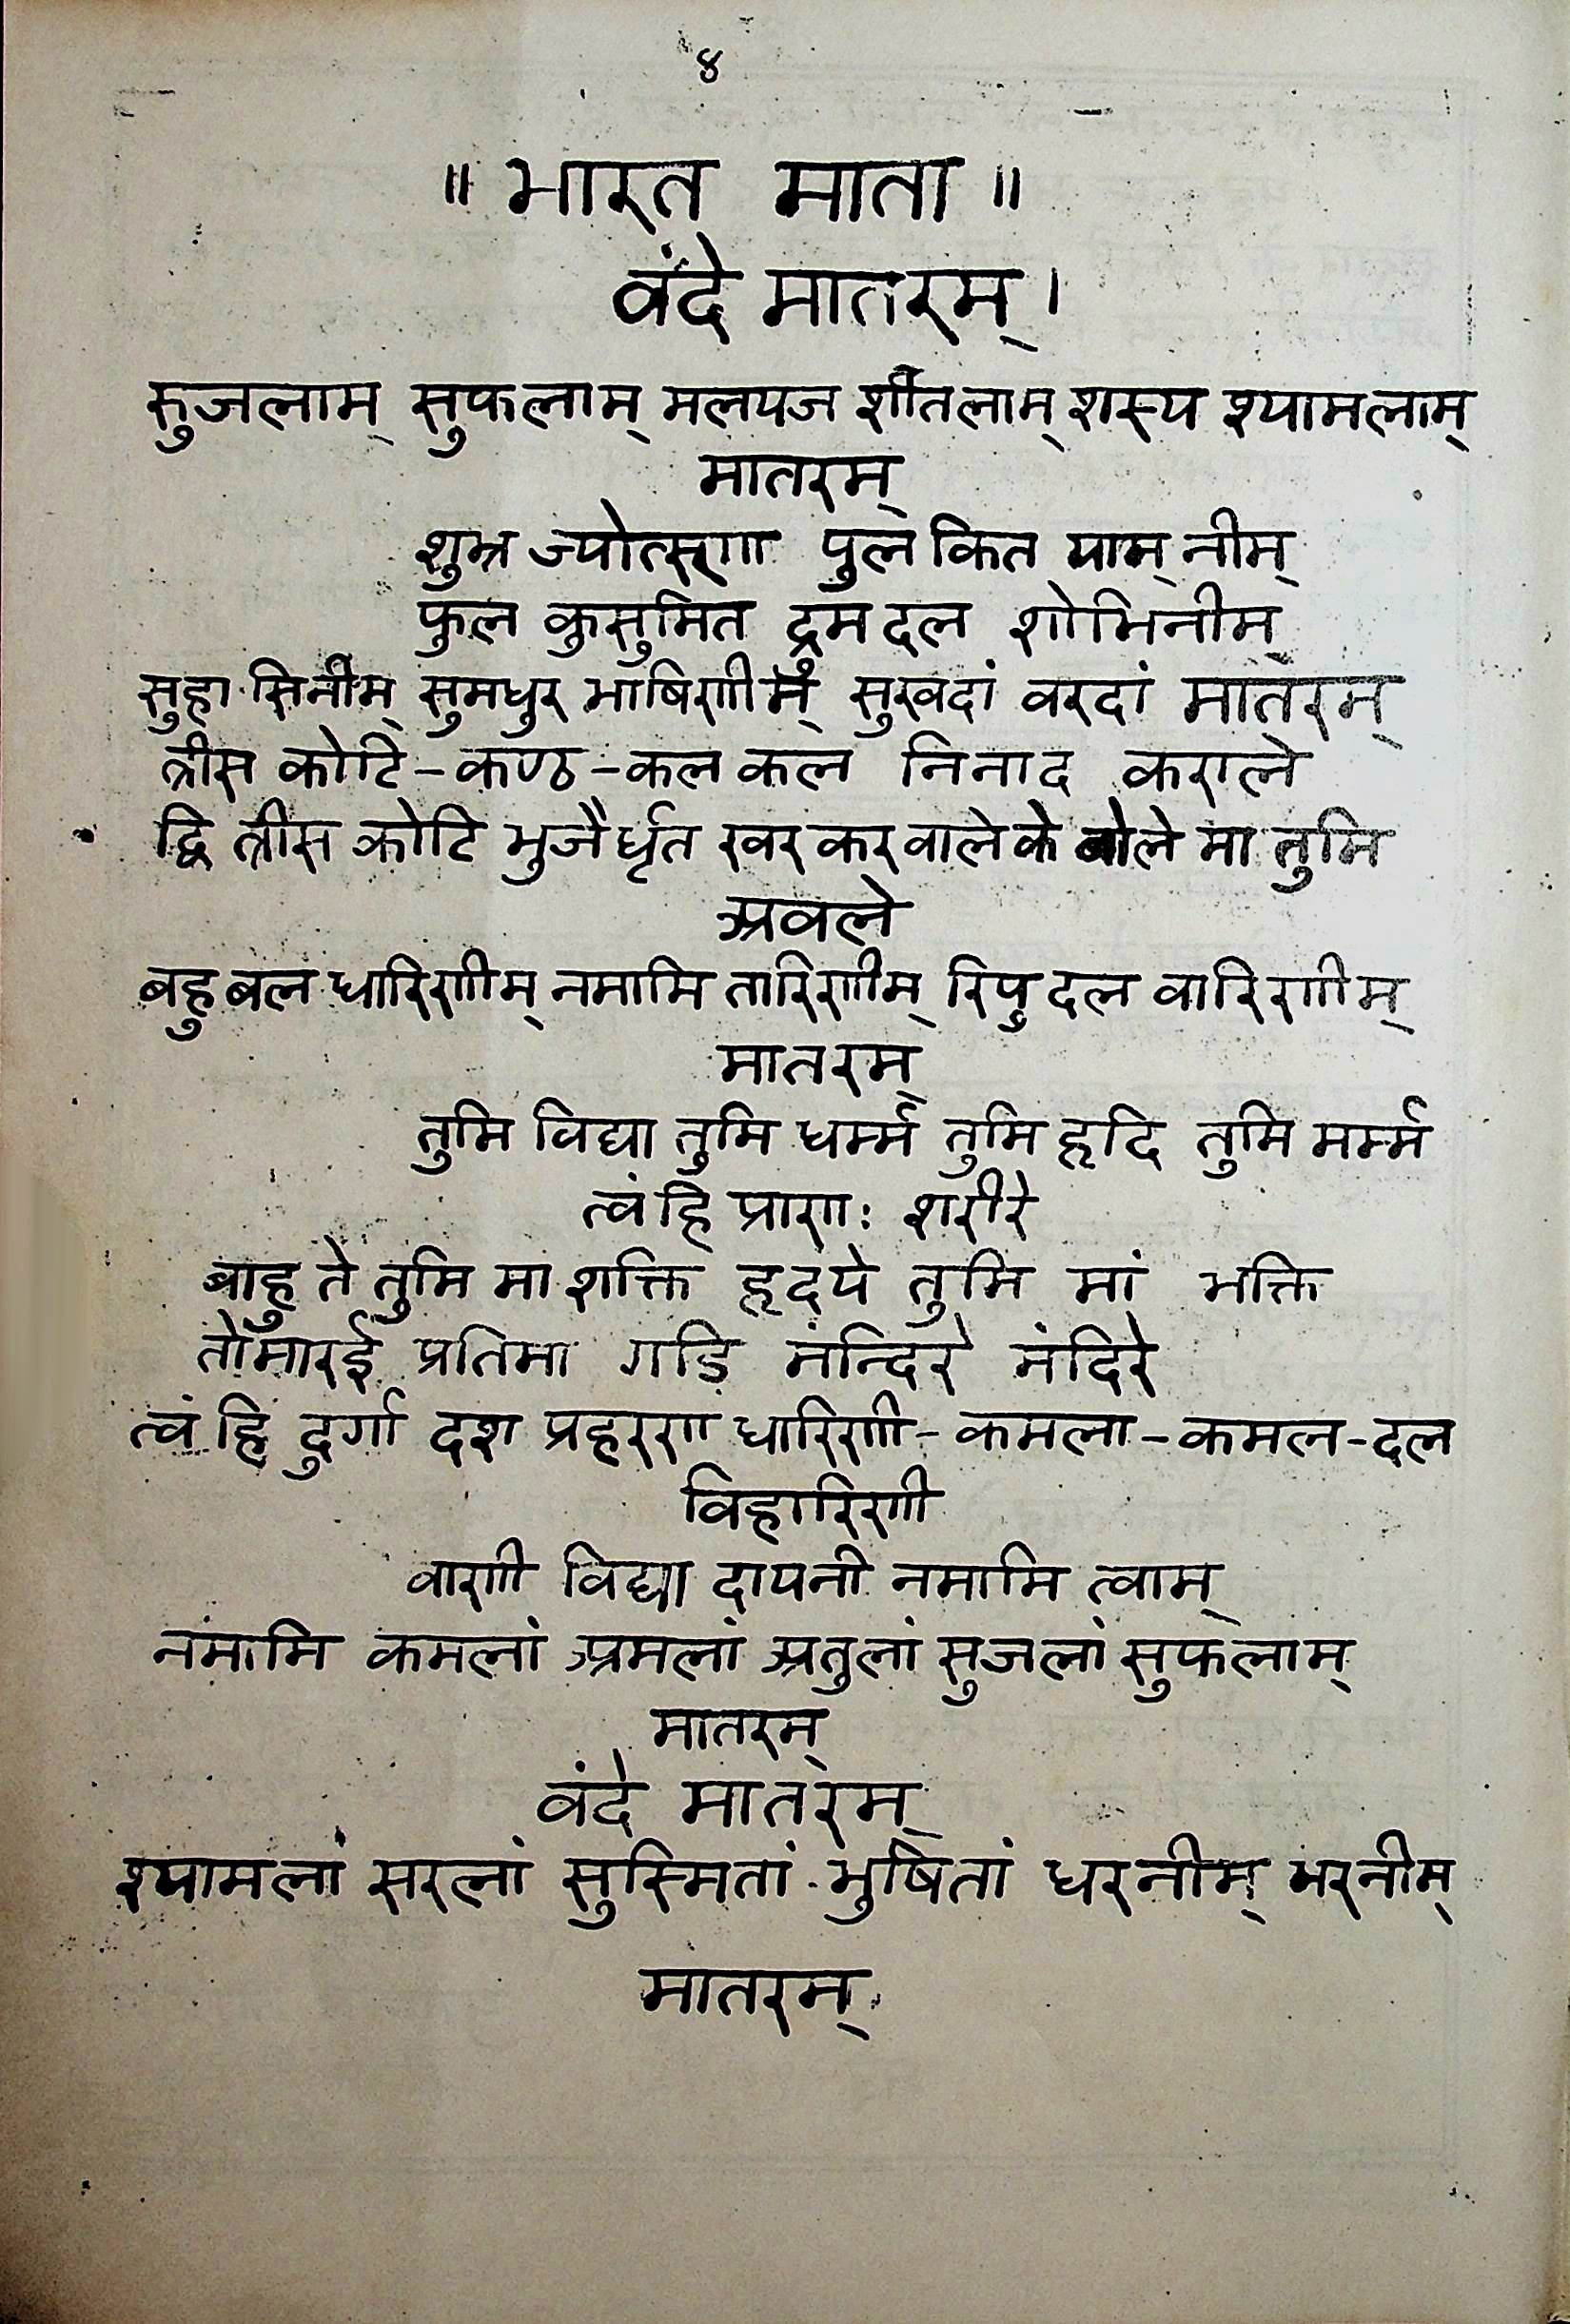 ४
॥ भारत माता ॥
वंदे मातरम् ।
सुजलाम् सुफलाम् मलयज शीतलाम् शस्य श्यामलाम्
मातरम्
शुभ्र ज्योत्स्णा पुलकित याम् नीम्
फुल कुसुमित द्रुमदल शोभिनीम्
सुहासिनीम् सुमधुर भाषिणीम् सुखदां वरदां मातरम्
त्रीस कोटि - कण्ठ - कल कल निनाद कराले
द्वि त्रीस कोटि भुजैर्धृत खर करवाले के बोले मा तुमि
अवले
बहु बल धारिणीम् नमामि तारिणीम् रिपु दल वारिणीम्
मातरम्
तुमि विद्या तुमि धर्म्म तुमि हृदि तुमि मर्म्म
त्वं हि प्राणः शरीरे
बाहु ते तुमि मा शक्ति हृदये तुमि मां भक्ति
तोमारई प्रतिमा गडि मंन्दिरे मंदिरे
त्वं हि दुर्गा दश प्रहरण धारिणी - कमला - कमल - दल
विहारिणी
वाणी विद्या दायनी नमामि त्वाम्
नमामि कमलां अमलां अतुलां सुजलां सुफलाम्
मातरम्
वंदे मातरम्
श्यामलां सरलां सुस्मितां भुषितां धरनीम् भरनीम्
मातरम्